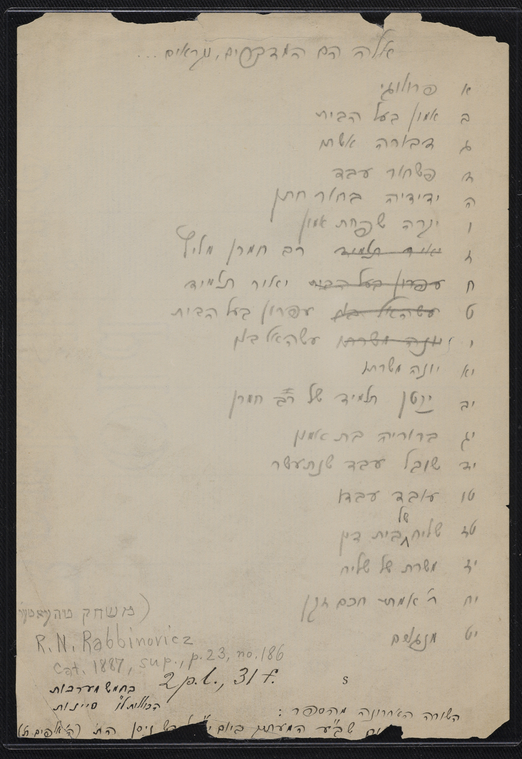 אלה הם המדברים, נקראים...
א פרולוגי
ב אמון בעל הבית
ג דבורה אשתו
ד פשחור עבד
ה ידידיה בחור חתן
ו יערה שפחת אמון
ז יאיר תלמיד רב חמרן מליץ
ח עפרון בעל הבית יאיר תלמיד
ט עשהאל בלן עפרון בעל הבית
י יונה משרת עשהאל בלן
יא יונה משרת
יב יקטן תלמיד של רב חמרן
יג ברוריה בת אמון
יד שובל עבד שנתעשר
טו עובד עבדו
טז שליח של בית דין
יז משרת של שליח
יח ר' אמתי חכם זקן
יט מנגנים
R. N. Rabbinovicz
Cat. 1887, sup., p. 23, no. 186
בחמש מערכות
2 p.l., 31 f.
s
השורה האחרונה מהספר:
ביום
ניסן